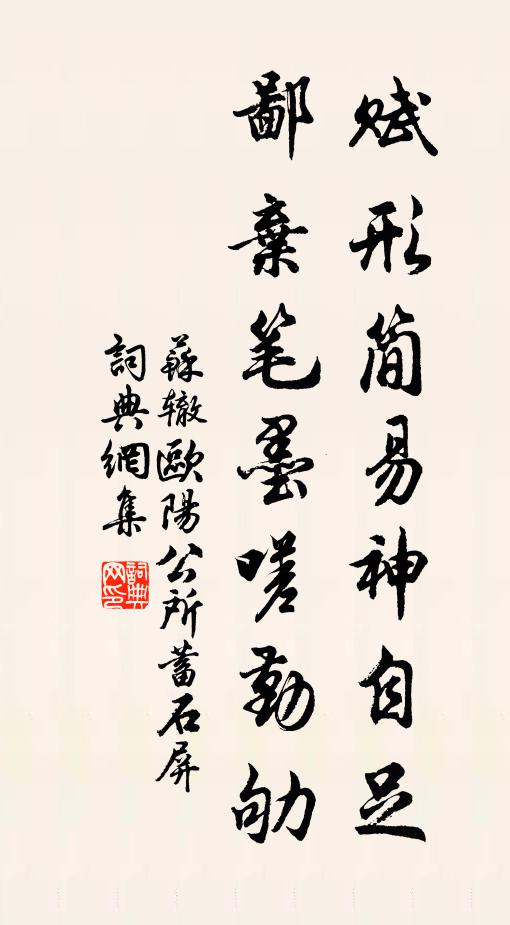 赋形简易神自足
鄙棄笔墨嗟勤劬
蘇辙歐陽公所蓄石屏
詞典網集
詞典
网印